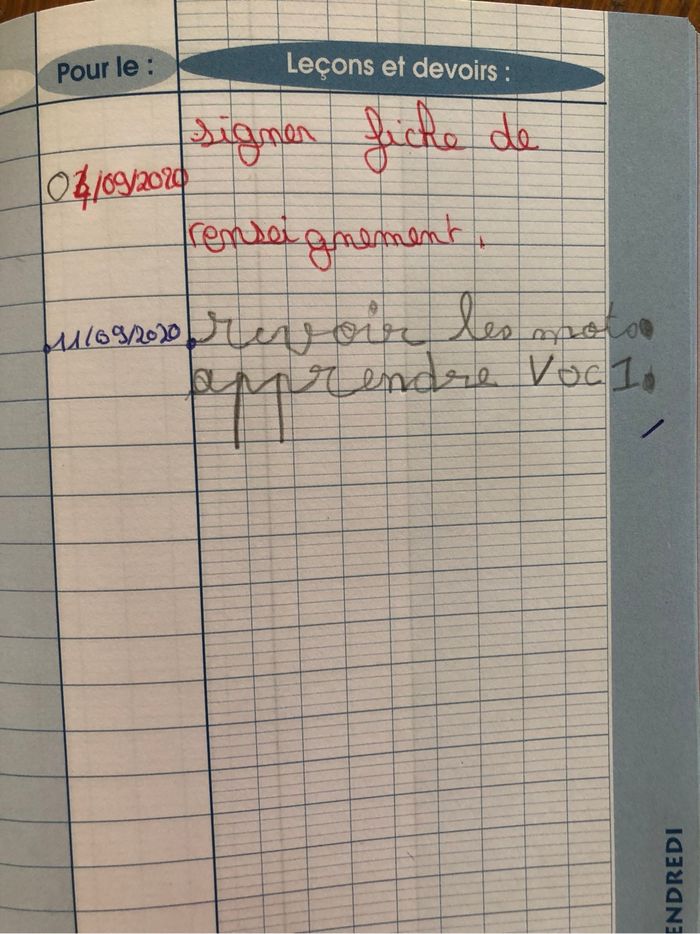 Pour le :
Leçons et devoirs :
signer fiche de
04/09/2020
renseignement.
11/09/2020 revoir les mots.
apprendre Voc 1.
ENDREDI